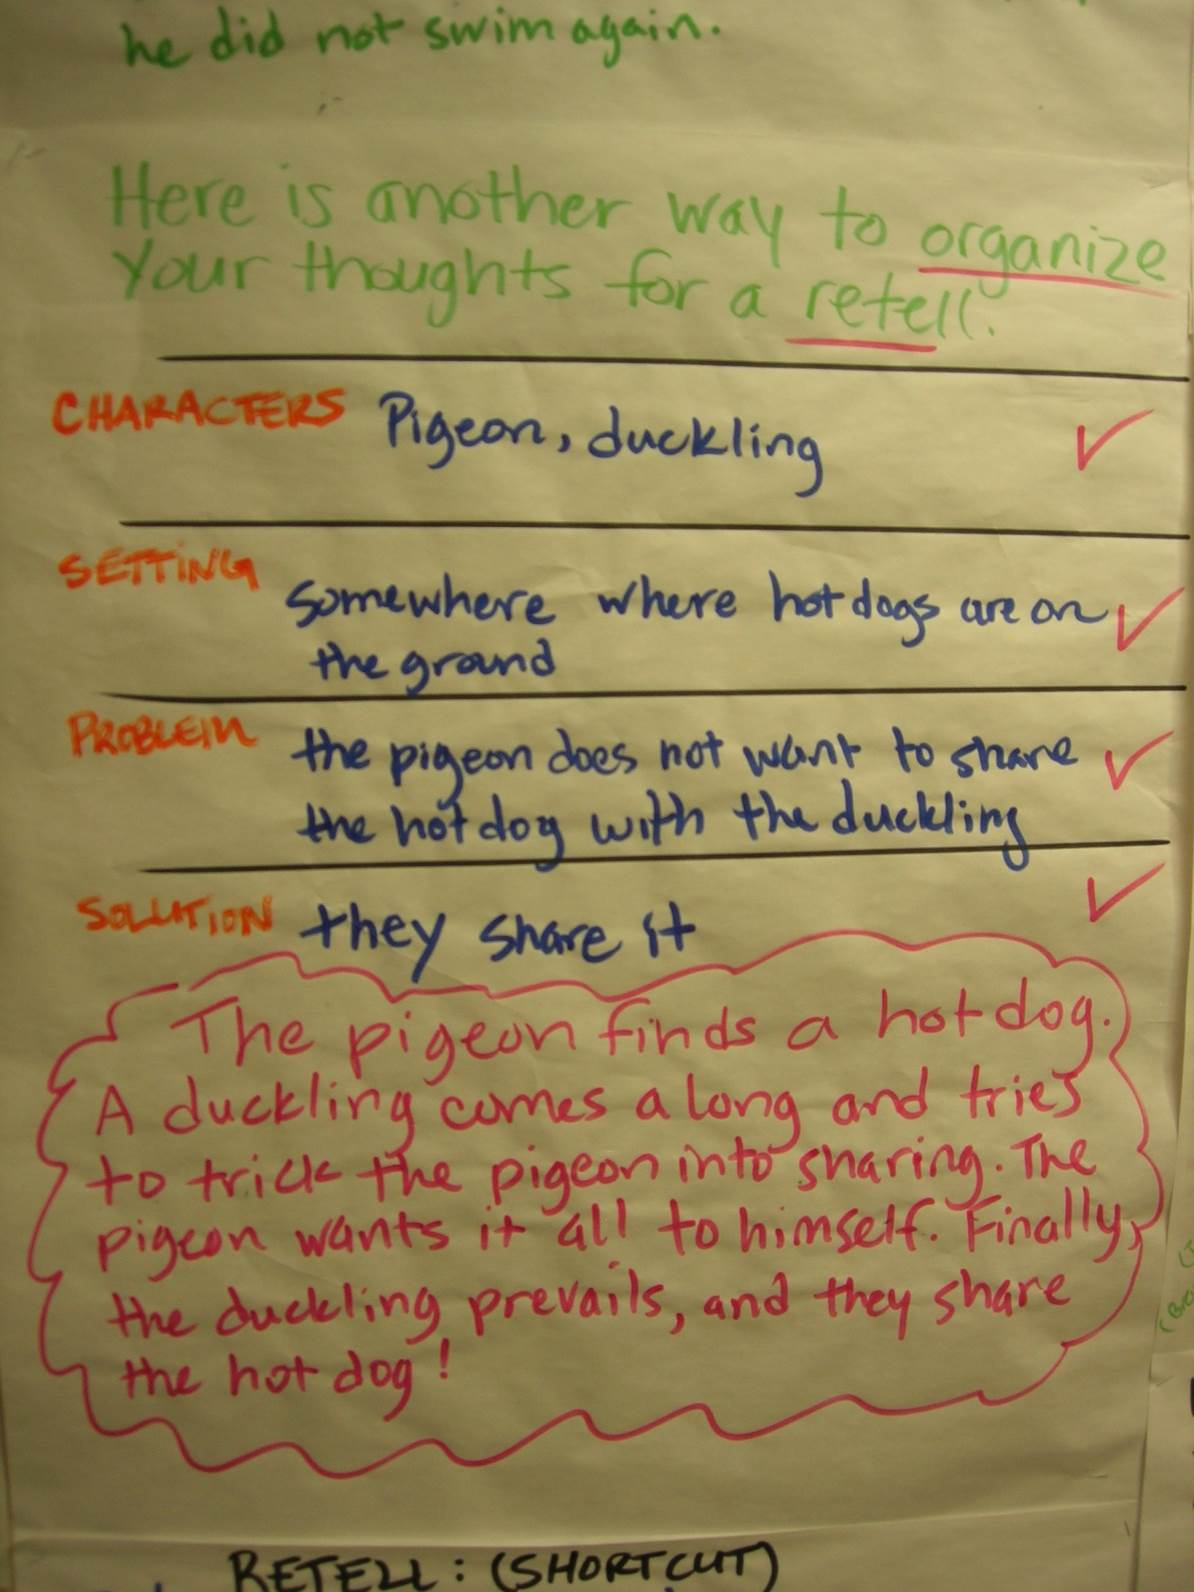 he did not swim again.
Here is another way to organize
your thoughts for a retell.
CHARACTERS Pigeon, duckling ✓
SETTING somewhere where hot dogs are on ✓
the ground
PROBLEM the pigeon does not want to share ✓
the hot dog with the duckling
SOLUTION they share it ✓
The pigeon finds a hot dog.
A duckling comes along and tries
to trick the pigeon into sharing. The
pigeon wants it all to himself. Finally,
the duckling prevails, and they share
the hot dog!
RETELL: (SHORTCUT)